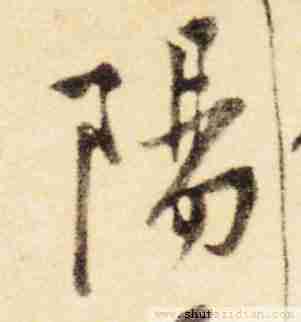 陽
www.shufazidian.com